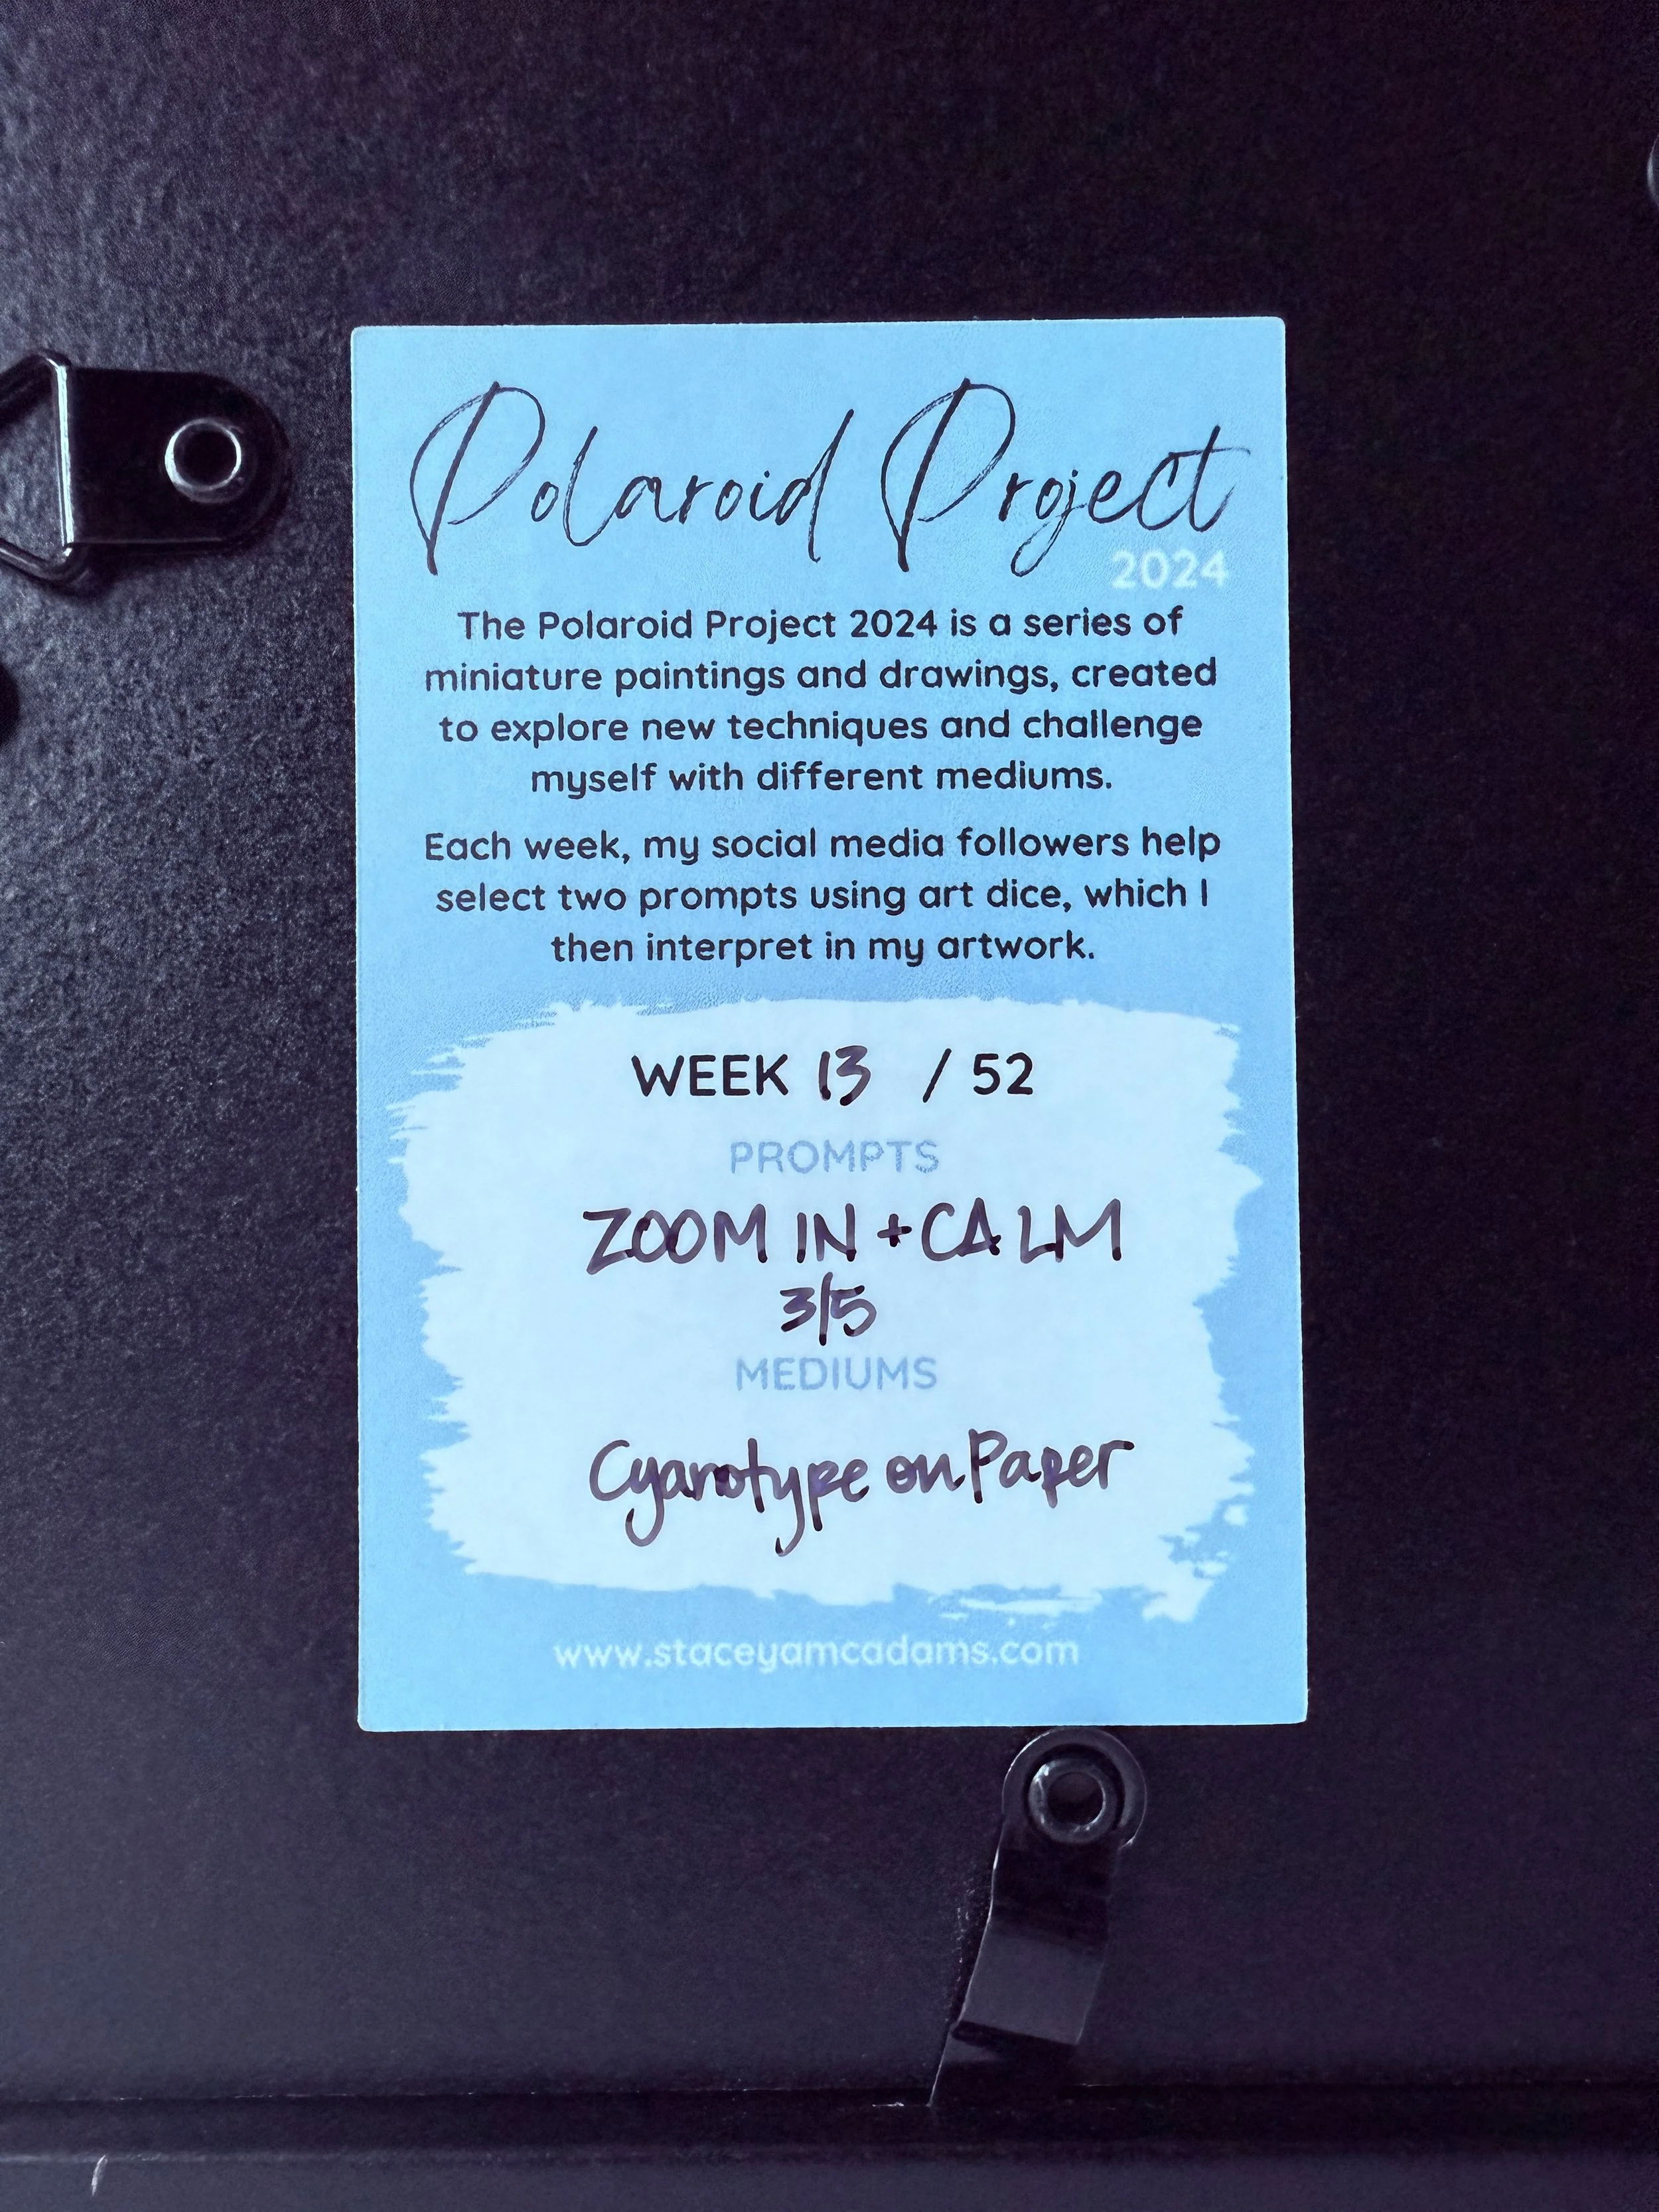 Polaroid Project
2024
The Polaroid Project 2024 is a series of
miniature paintings and drawings, created
to explore new techniques and challenge
myself with different mediums.
Each week, my social media followers help
select two prompts using art dice, which I
then interpret in my artwork.
WEEK 13 / 52
PROMPTS
ZOOM IN + CALM
3/5
MEDIUMS
Cyanotype on Paper
www.staceyamcadams.com